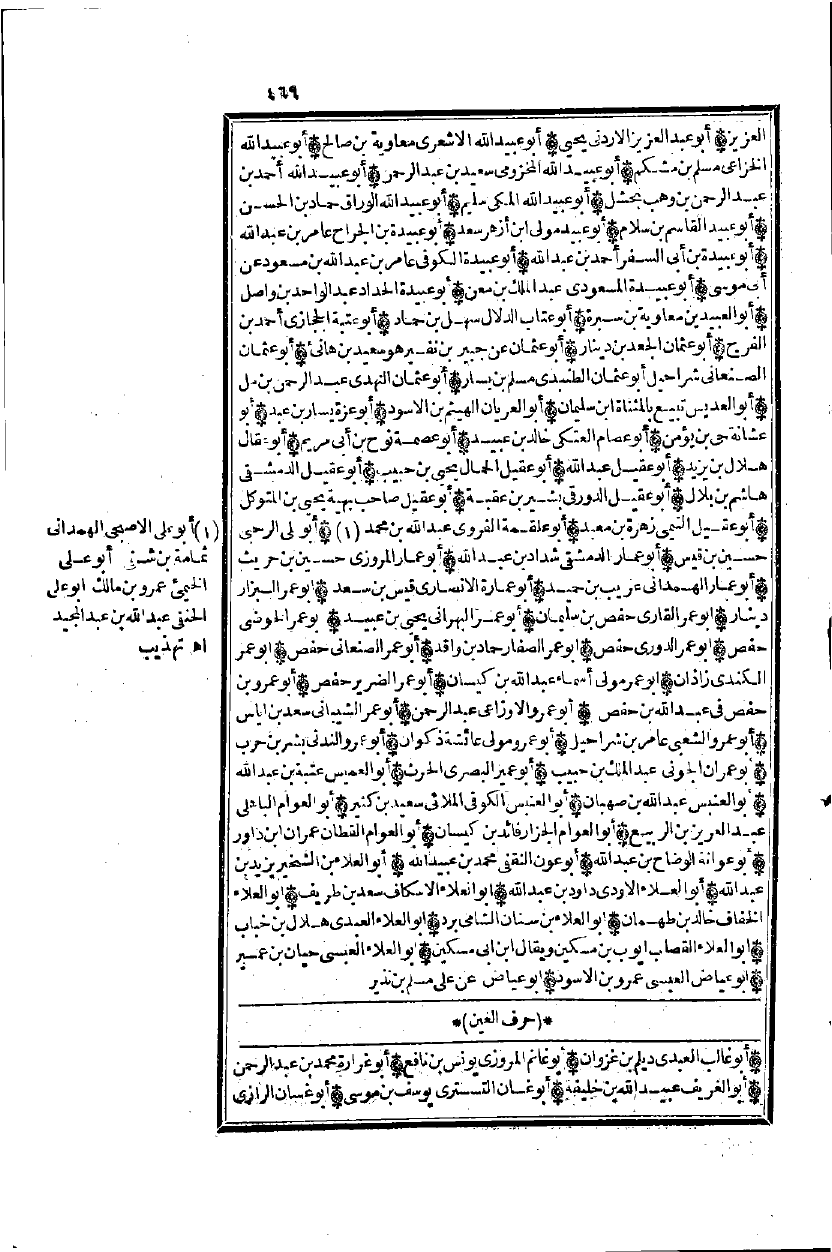 ٤٦٩
العزيز۞ أبو عبد العزيز الاردنى يحيى۞ أبو عبيد الله الاشعرى معاوية بن صالح۞ أبو عبيد الله
الخزاعى مسلم بن مشكم۞ أبو عبيد الله المخزومى سعيد بن عبد الرحمن۞ أبو عبيد الله أحمد بن
عبد الرحمن بن وهب بحشل۞ أبو عبيد الله المكى سليم۞ أبو عبيد الله الوراق حماد بن الحسن
۞ أبو عبيد القاسم بن سلام۞ أبو عبيد مولى ابن أزهر سعد۞ أبو عبيدة بن الجراح عامر بن عبد الله
۞ أبو عبيدة بن أبى السفر أحمد بن عبد الله۞ أبو عبيدة الكوفى عامر بن عبد الله بن مسعود عن
أبى موسى۞ أبو عبيدة المسعودى عبد الملك بن معن۞ أبو عبيدة الحداد عبد الواحد بن واصل
۞ أبو العبيد بن معاوية بن سبرة۞ أبو عتاب الدلال سهل بن حماد۞ أبو عتبة الحجازى أحمد بن
الفرج۞ أبو عثمان الجعد بن دينار۞ أبو عثمان عن جبير بن نفير هو سعيد بن هانئ۞ أبو عثمان
الصنعانى شراحيل أبو عثمان الطنبدى مسلم بن يسار۞ أبو عثمان النهدى عبد الرحمن بن مل
۞ أبو العدبس تبيع بالمثناة ابن سليمان۞ أبو العريان الهيثم بن الاسود۞ أبو عزة يسار بن عبد۞ أبو
عشانة حى بن يؤمن۞ أبو عصام العتكى خالد بن عبيد۞ أبو عصمة نوح بن أبى مريم۞ أبو عقال
هلال بن يزيد۞ أبو عقيل عبد الله۞ أبو عقيل الحمال يحيى بن حبيب۞ أبو عقيل الدمشقى
هاشم بن بلال۞ أبو عقيل الدورقى بشير بن عقبة۞ أبو عقيل صاحب بهية يحيى بن المتوكل
۞ أبو عقيل التيمى زهرة بن معبد۞ أبو علقمة الفروى عبد الله بن محمد (١)۞ أبو لى الرحبى
حسين بن قيس۞ أبو عمار الدمشقى شداد بن عبد الله۞ أبو عمار المروزى حسين بن حريث
۞ أبو عمار الهمدانى عريب بن حميد۞ أبو عمارة الانصارى قيس بن سعد ۞ ابو عمر البزار
دينار۞ ابو عمر القارى حفص بن سليمان۞ أبو عمر البهرانى يحيى بن عبيد۞ بو عمر الحوضى
حفص۞ ابو عمر الدورى حفص۞ ابو عمر الصفار حماد بن واقد۞ أبو عمر الصنعانى حفص۞ ابو عمر
الكندى زاذان۞ ابو عمر مولى أسماء عبد الله بن كيسان۞ أبو عمر الضرير حفص۞ أبو عمرو بن
حفص فى عبد الله بن حفص ۞ أبو عمرو الاوزاعى عبد الرحمن۞ أبو عمر الشيبانى سعد بن اياس
۞ أبو عمرو الشعبى عامر بن شراحيل۞ أبو عمرو مولى عائشة ذكوان۞ أبو عمرو الندبى بشر بن حرب
۞ أبو عمران الجونى عبد الملك بن حبيب ۞ أبو عمير البصرى الحرث۞ أبو العميس عتبة بن عبد الله
۞ أبو العنبس عبد الله بن صهبان۞ أبو العنبس الكوفى الملائى سعيد بن كثير۞ أبو العوام الباهلى
عبد العزيز بن الربيع۞ أبو العوام الجزار فائد بن كيسان۞ أبو العوام القطان عمران ابن داور
۞ أبو عوانة الوضاح بن عبد الله۞ أبو عون الثقفى محمد بن عبيد الله ۞ أبو العلاء بن الشخير يزيد بن
عبد الله۞ أبو العلاء الاودى داود بن عبد الله۞ ابو العلاء الاسكاف سعد بن طريف۞ ابو العلاء
الخفاف خالد بن طهمان۞ ابو العلاء بن سنان الشامى برد۞ ابو العلاء العبدى هلال بن خباب
۞ ابو العلاء القصاب ايوب بن مسكين ويقال ابن ابى مسكين۞ ابو العلاء العبسى حيان بن عمير
۞ ابو عياض العبسى عمرو بن الاسود۞ ابو عياض عن على مسلم بن نذير
*(حرف الغين)*
۞ أبو غالب العبدى ديلم بن غزوان۞ أبو غانم المروزى يونس بن نافع۞ أبو غرارة محمد بن عبد الرحمن
۞ أبو الغريف عبيد الله بن خليفة۞ أبو غسان التسترى يوسف بن موسى۞ أبو غسان الرازى
(١) أبو على الاصبحى الهمدانى
ثمامة بن شفى أبو على
الجنبى عمرو بن مالك ابو على
الحنفى عبد الله بن عبد المجيد
اه تهذيب